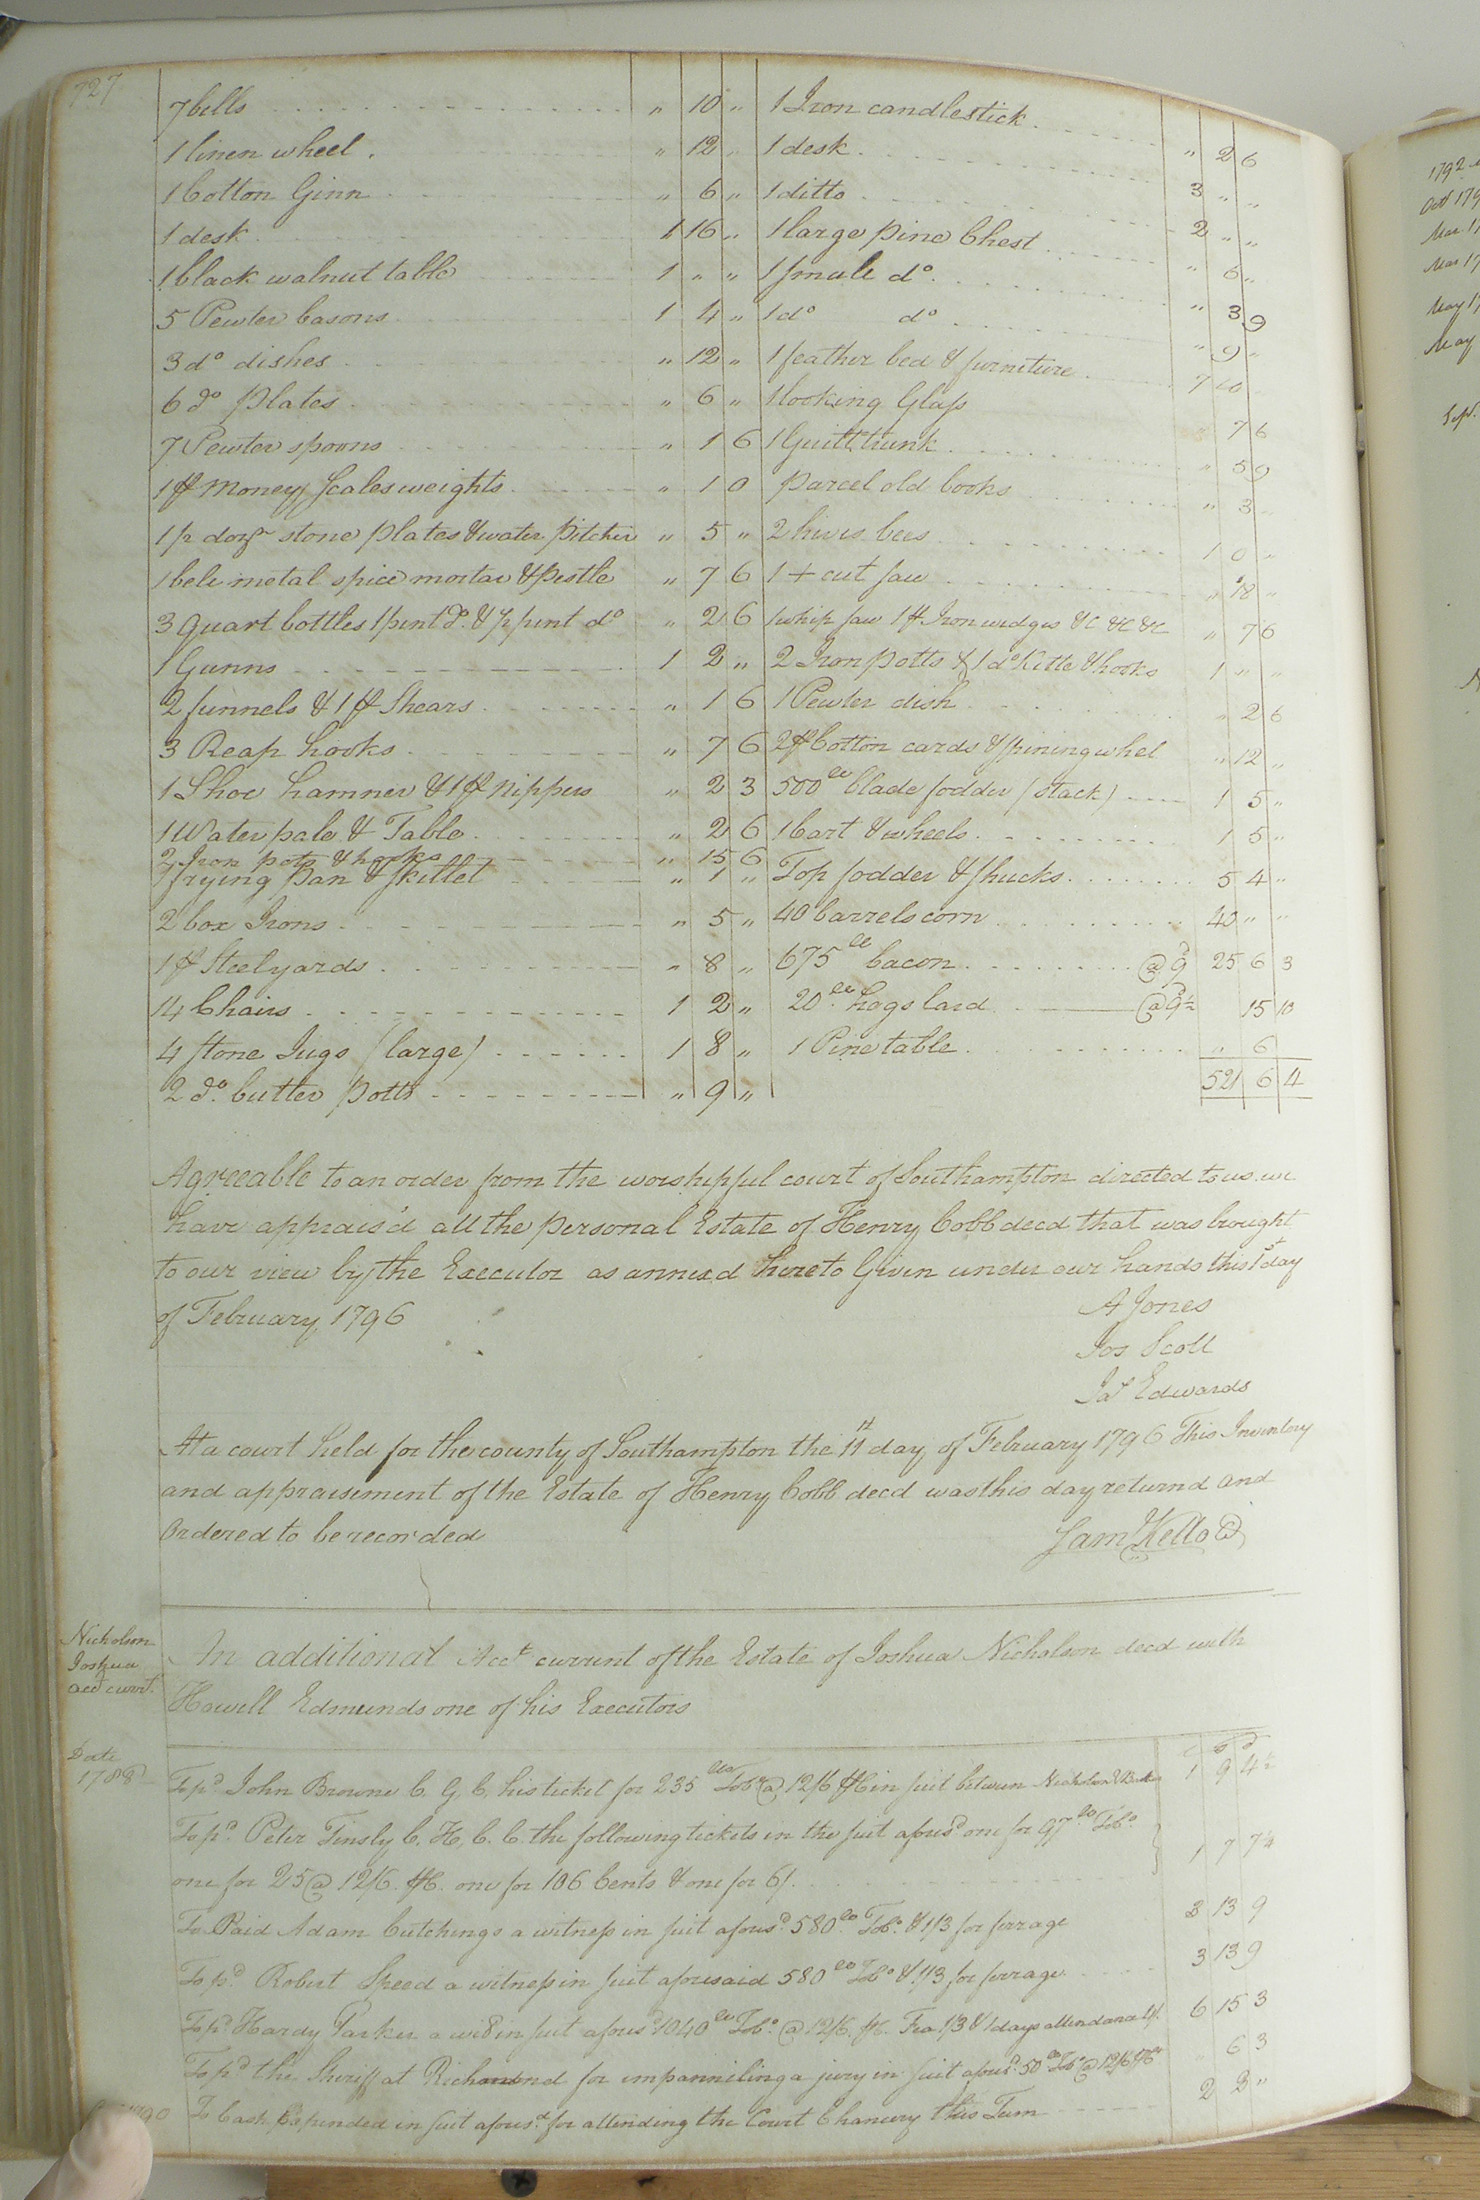 727
7 bells " 10 " 1 Iron candlestick " 2 6
1 linen wheel " 12 " 1 desk 3 " "
1 Cotton Ginn " 6 " 1 ditto 2 " "
1 desk 1 16 " 1 large pine Chest " 6 "
1 black walnut table 1 " " 1 smale do. " 3 9
5 Pewter basons 1 4 " 1 do do " 9 "
3 do dishes " 12 " 1 feather bed & furniture 7 10
6 do plates " 6 " 1 looking Glass " 7 6
7 Pewter spoons " 1 6 1 Guilt trunk " 5 9
1 pr Money Scales weights " 1 0 parcel old books " 3
1/2 dozn stone plates & water pitcher " 5 " 2 hives bees 1 0 "
1 bell metal spice mortar & pestle " 7 6 1 + cut saw " 18 "
3 Quart bottles 1 pint do. & 1/2 pint do " 2 6 1 whip saw 1 pr Iron wedges &c &c &c " 7 6
1 Gunns 1 2 " 2 Iron potts & 1 do Kittle & hooks 1 " "
2 funnels & 1 pr Shears " 1 6 1 Pewter dish " 2 6
3 Reap hooks " 7 6 2 pr Cotton cards & spining whel " 12 "
1 Shoe hamner & 1 pr Nippers " 2 3 500 lb blade fodder (stack) 1 5 "
1 Water pale & Table " 2 6 1 Cart & wheels 1 5 "
2 Iron pots & hooks " 15 6
1 frying Pan & skillet " 1 " Top fodder & shucks 5 4 "
2 box Irons " 5 " 40 barrels corn 40 " "
1 pr Steelyards " 8 " 675 lb bacon @ 9d 25 6 3
14 Chairs 1 2 " 20 lb hogs lard @ 9½ 15 10
4 stone Jugs (large) 1 8 " 1 Pine table " 6
2 do. butter potts " 9 " 521 6 4
Agreeable to an order from the worshipful court of Southampton directed to us we
have apprais'd all the personal Estate of Henry Cobb decd that was brought
to our view by the Executor as annexd hereto Given under our hands this 1st day
of February 1796
A Jones
Jos Scott
Jas Edwards
At a court held for the county of Southampton the 11th day of February 1796 This Inventory
and appraisement of the Estate of Henry Cobb decd was this day returnd and
Ordered to be recorded
Saml Kello C
Nicholson
Joshua
acct currt.
An additional Acct current of the Estate of Joshua Nicholson decd with
Howell Edmunds one of his Executors
Date
1788
To pd John Browne C. G. C. his ticket for 235 lbs Tobo @ 12/6 pC in suit between Nicholson & 1 9 4½
To pd. Peter Tinsly C. H. C. C. the following tickets in the suit aforesd one for 97 lb Tobo
one for 25 @ 12/6 pC. one for 106 Cents & one for 61. 1 7 7½
To Paid Adam Cutchings a witness in suit aforesd 580 lb Tobo. & 1/3 for ferrage 3 13 9
To pd. Robert Speed a witness in suit aforesaid 580 lb Tobo & 1/3 for ferrage 3 13 9
To pd Hardy Parker a in suit aforesd 1040 lb Tobo. @ 12/6 pC. Fea 1/3 & 1 days attendance 6 15 3
To pd the Sheriff at Richmond for impanniling a jury in suit aforesd. 50 lb Tobo @ 12/6 pC " 6 3
1790 To Cash Expended in suit aforesd for attending the Court Chancery this Term 2 2 "
1792
Oct 179
Mar. 1
Mar 17
May 17
May
Sept.